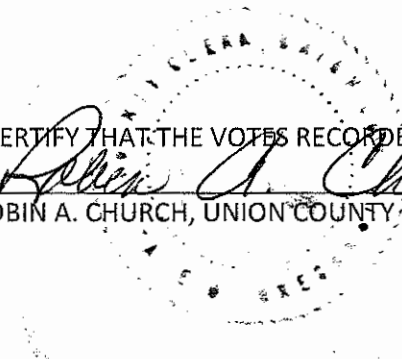 ERTIFY THAT THE VOTES RECORDE
Robin A. Ch
OBIN A. CHURCH, UNION COUNTY